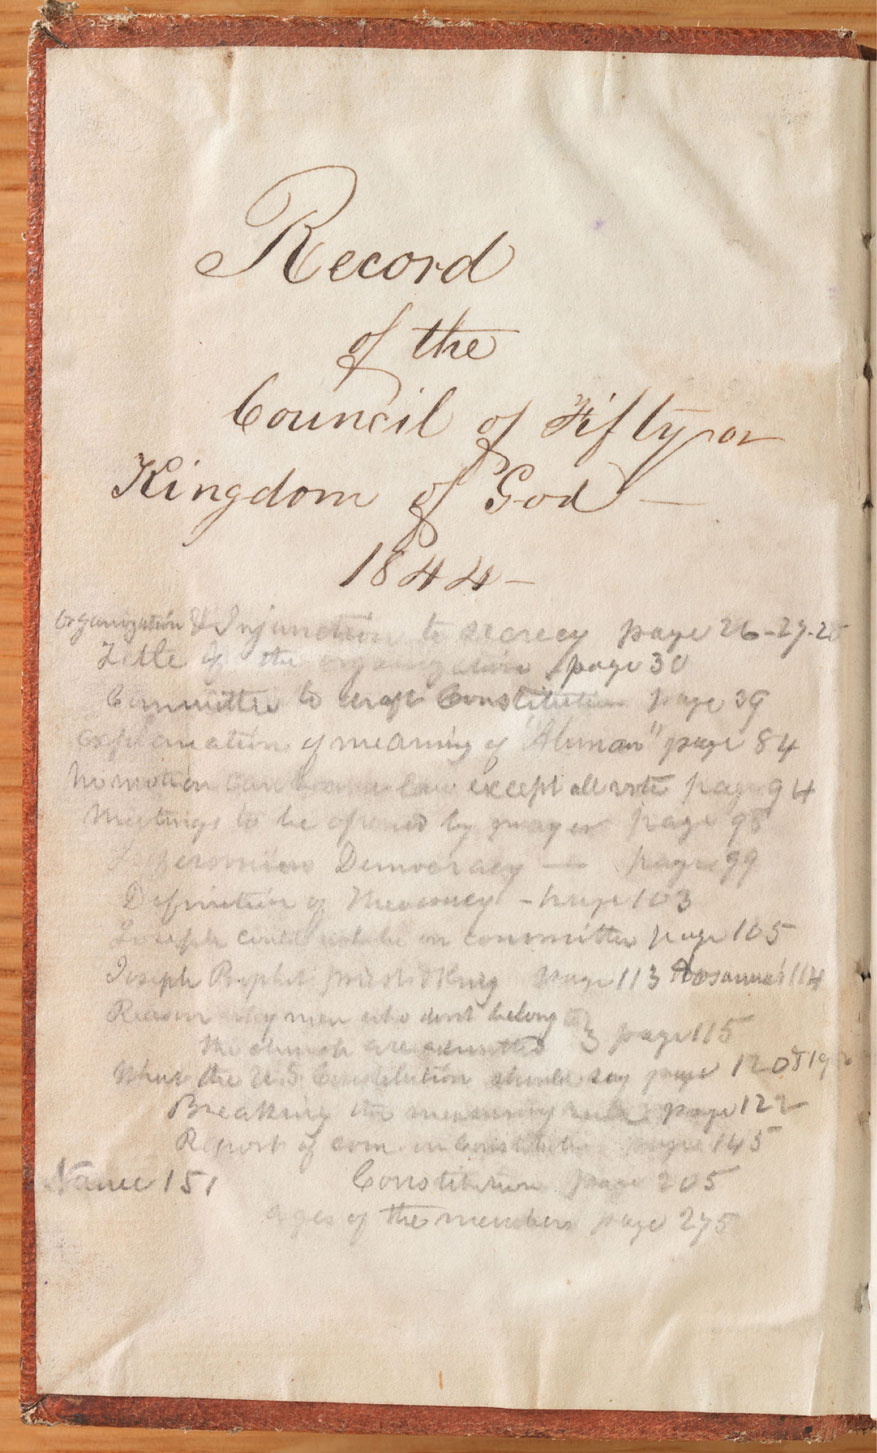 Record
of the
Council of Fifty or
Kingdom of God —
1844 —
Organization & Injunction to secrecy page 26-27-28
Title of the organization page 30
Committee to draft Constitution page 39
Explanation of meaning of "Ahman" page 84
No motion can become law except all vote page 94
Meetings to be opened by prayer page 98
Democracy — page 99
Definition of Theocracy - page 103
Joseph could not be on committee page 105
Joseph Prophet priest & King page 113 Hosanna! 114
Reason why men who dont belong to
the church are admitted 3 page 115
What the U S Constitution should say page 120 &
Breaking the measuring rule page 122
Report of com. on Constitution page 145
Name 151 Constitution page 205
ages of the members page 275